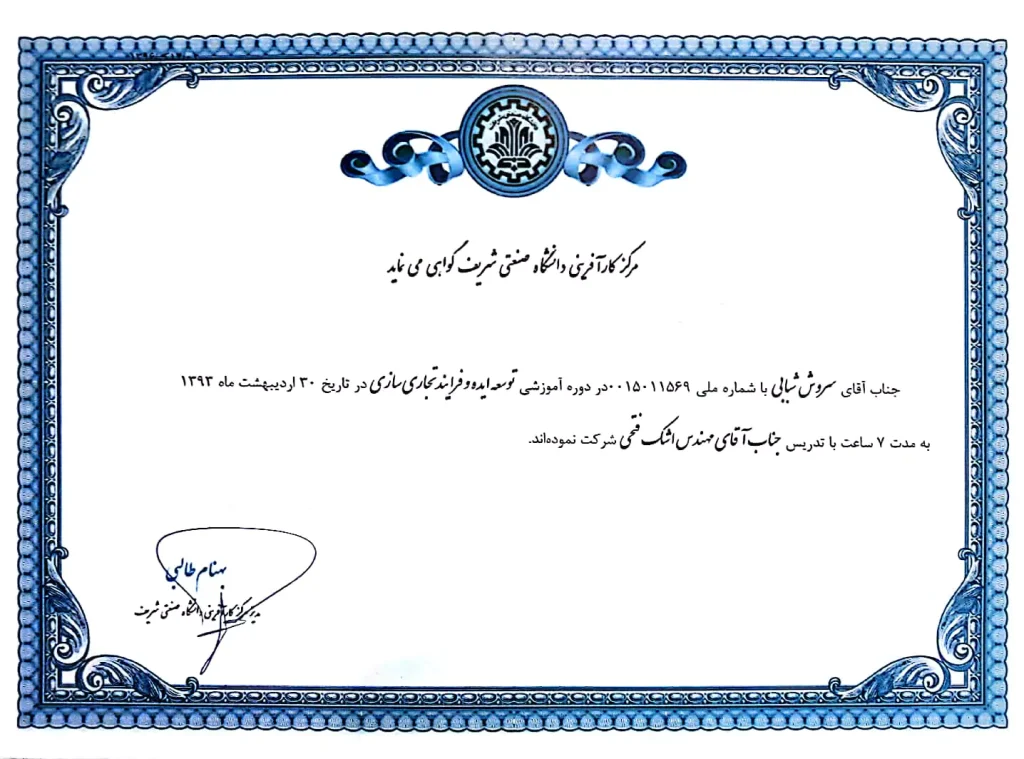 مرکز کارآفرینی دانشگاه صنعتی شریف گواهی می نماید
جناب آقای سروش شبابی با شماره ملی ۰۰۱۵۰۱۱۵۶۹در دوره آموزشی توسعه ایده و فرایند تجاری سازی در تاریخ ۳۰ اردیبهشت ماه ۱۳۹۳
به مدت ۷ ساعت با تدریس جناب آقای مهندس اشک فتحی شرکت نموده‌اند.
بهنام طالبی
مدیر مرکز کارآفرینی دانشگاه صنعتی شریف